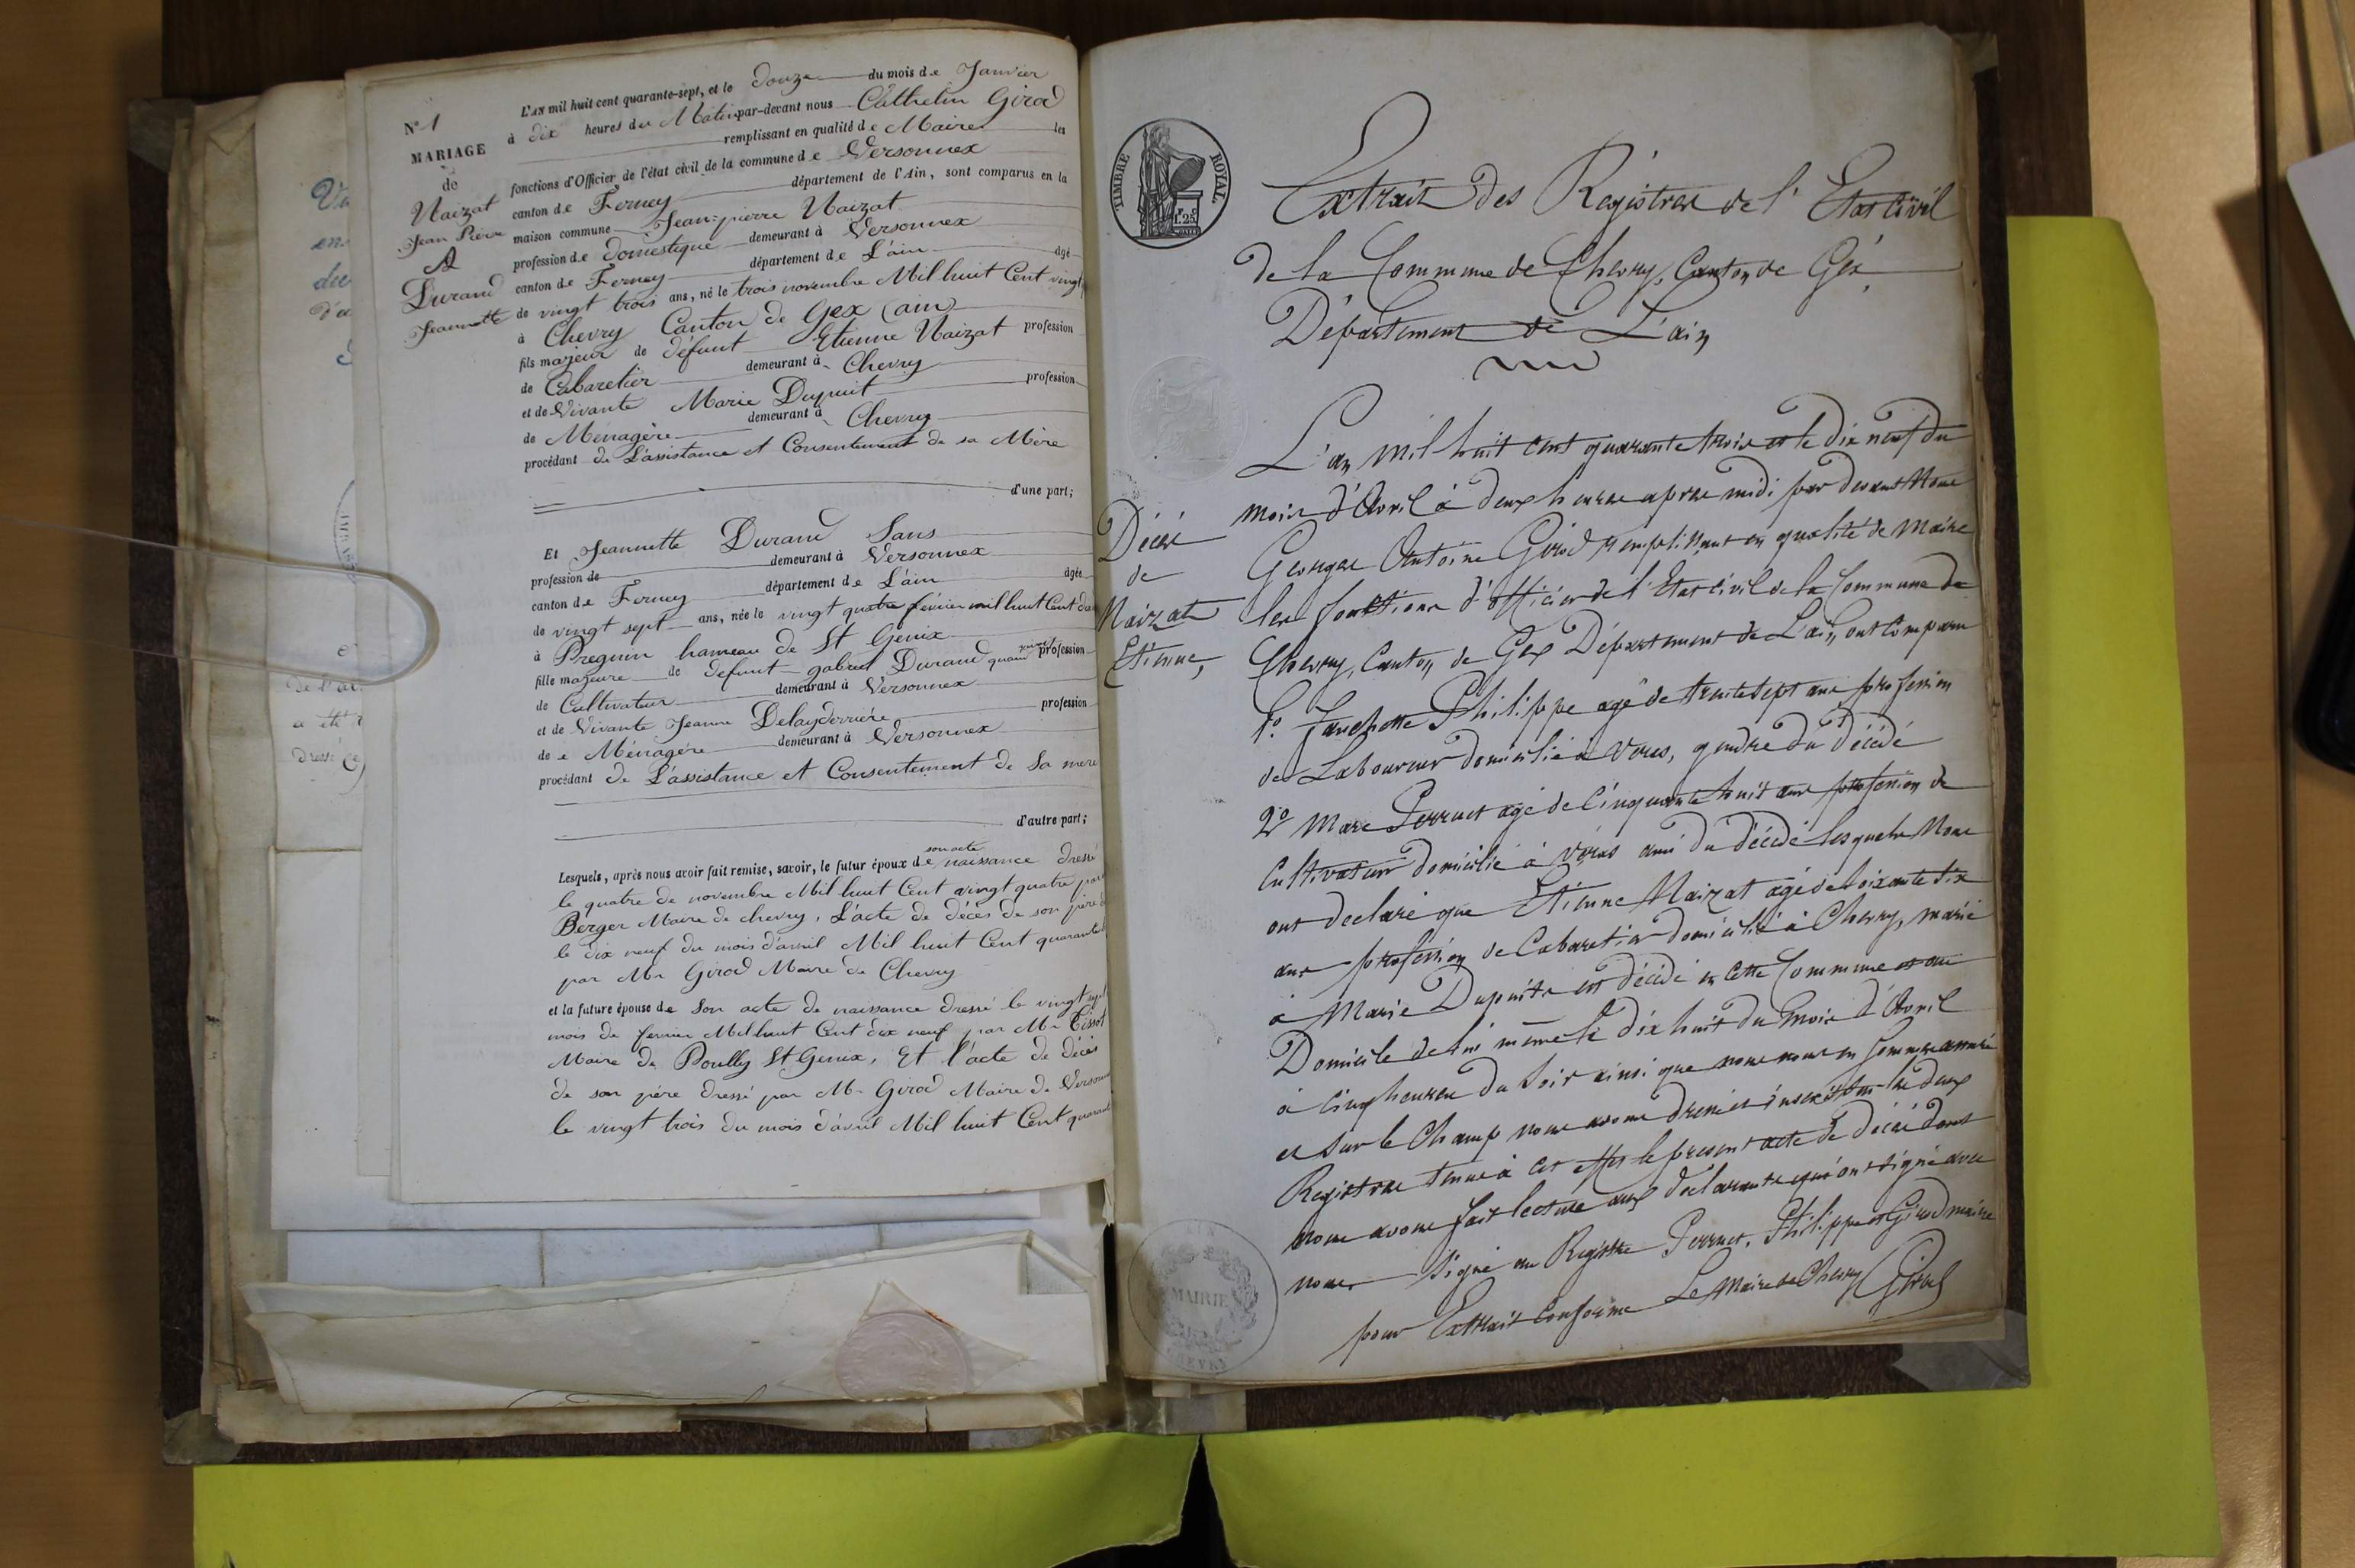 N° 1
MARIAGE
de
Naizat
Jean Pierre
Et
Durand
Jeannette
L'AN mil huit cent quarante-sept, et le douze du mois de Janvier
à dix heures du Matin par-devant nous Cathelin Girod
remplissant en qualité de Maire les
fonctions d'Officier de l'état civil de la commune de Versonnex
canton de Ferney département de l'Ain, sont comparus en la
maison commune Jean-pierre Naizat
profession de domestique demeurant à Versonnex
canton de Ferney département de L'ain âgé
de vingt trois ans, né le trois novembre Mil huit Cent vingt
à Chevry Canton de Gex (ain)
fils majeur de défunt Etienne Naizat profession
de Cabaretier demeurant à Chevry
et de Vivante Marie Dupuit profession
de Ménagère demeurant à Chevry
procédant de L'assistance et Consentement de sa Mère
d'une part;
Et Jeannette Durand Sans
profession de demeurant à Versonnex
canton de Ferney département de L'ain âgée
de vingt sept ans, née le vingt quatre fevrier mil huit Cent
à Pregnin hameau de St Genix
fille majeure de défunt gabriel Durand quand vivait profession
de Cultivateur demeurant à Versonnex
et de Vivante Jeanne Delayderrière profession
de e Ménagère demeurant à Versonnex
procédant de L'assistance et Consentement de Sa mere
d'autre part;
Lesquels, après nous avoir fait remise, savoir, le futur époux de son acte naissance dressé
le quatre de novembre Mil huit Cent vingt quatre par
Berger Maire de chevry, L'acte de décès de son père
le dix neuf du mois d'avril Mil huit Cent quarante
par Mr Girod Maire de Chevry
et la future épouse de Son acte de naissance dressé le vingt sept
mois de fevrier Mil huit Cent dix neuf par Mr Tissot
Maire de Pouilly St Genix, Et l'acte de décès
de son père dressé par Mr Girod Maire de
le vingt trois du mois d'avril Mil huit Cent
TIMBRE ROYAL
1F 25
Extrait des Registres de l'Etat Civil
de la Commune de Chevry, Canton de Gex
Département de L'ain
Décès
de
Naizat
Etienne,
L'an mil huit cent quarante trois et le dix neuf du
mois d'Avril à deux heures apres midi par devant Nous
Georges Antoine Girod remplissant en qualité de Maire
les fonctions d'officier de l'Etat Civil de la Commune de
Chevry, Canton de Gex Département de L'ain, ont Comparu
1° Philippe agé de trente sept ans profession
de Laboureur domicilié à Vous, gendre du Décédé
2° Marc Perruet agé de Cinquante huit ans profession de
Cultivateur domicilié à Véras ami du décédé lesquels Nous
ont déclaré que Etienne Naizat agé de Soixante dix
ans profession de Cabaretier domicilié à Chevry, marié
à Marie Dupuits est décédé en cette Commune et au
Domicile de lui même le dix huit du Mois d'Avril
à Cinq heures du Soir ainsi que nous nous en Sommes assuré
et Sur le Champ nous avons dressé et inscrit sur les deux
Registres tenus à cet effet le présent acte de Décès dont
nous avons fait lecture aux déclarants qui ont signé avec
nous. Signé au Registre Perruet, Philippe et Girod maire
pour Extrait Conforme Le Maire de Chevry Girod
MAIRIE
CHEVRY